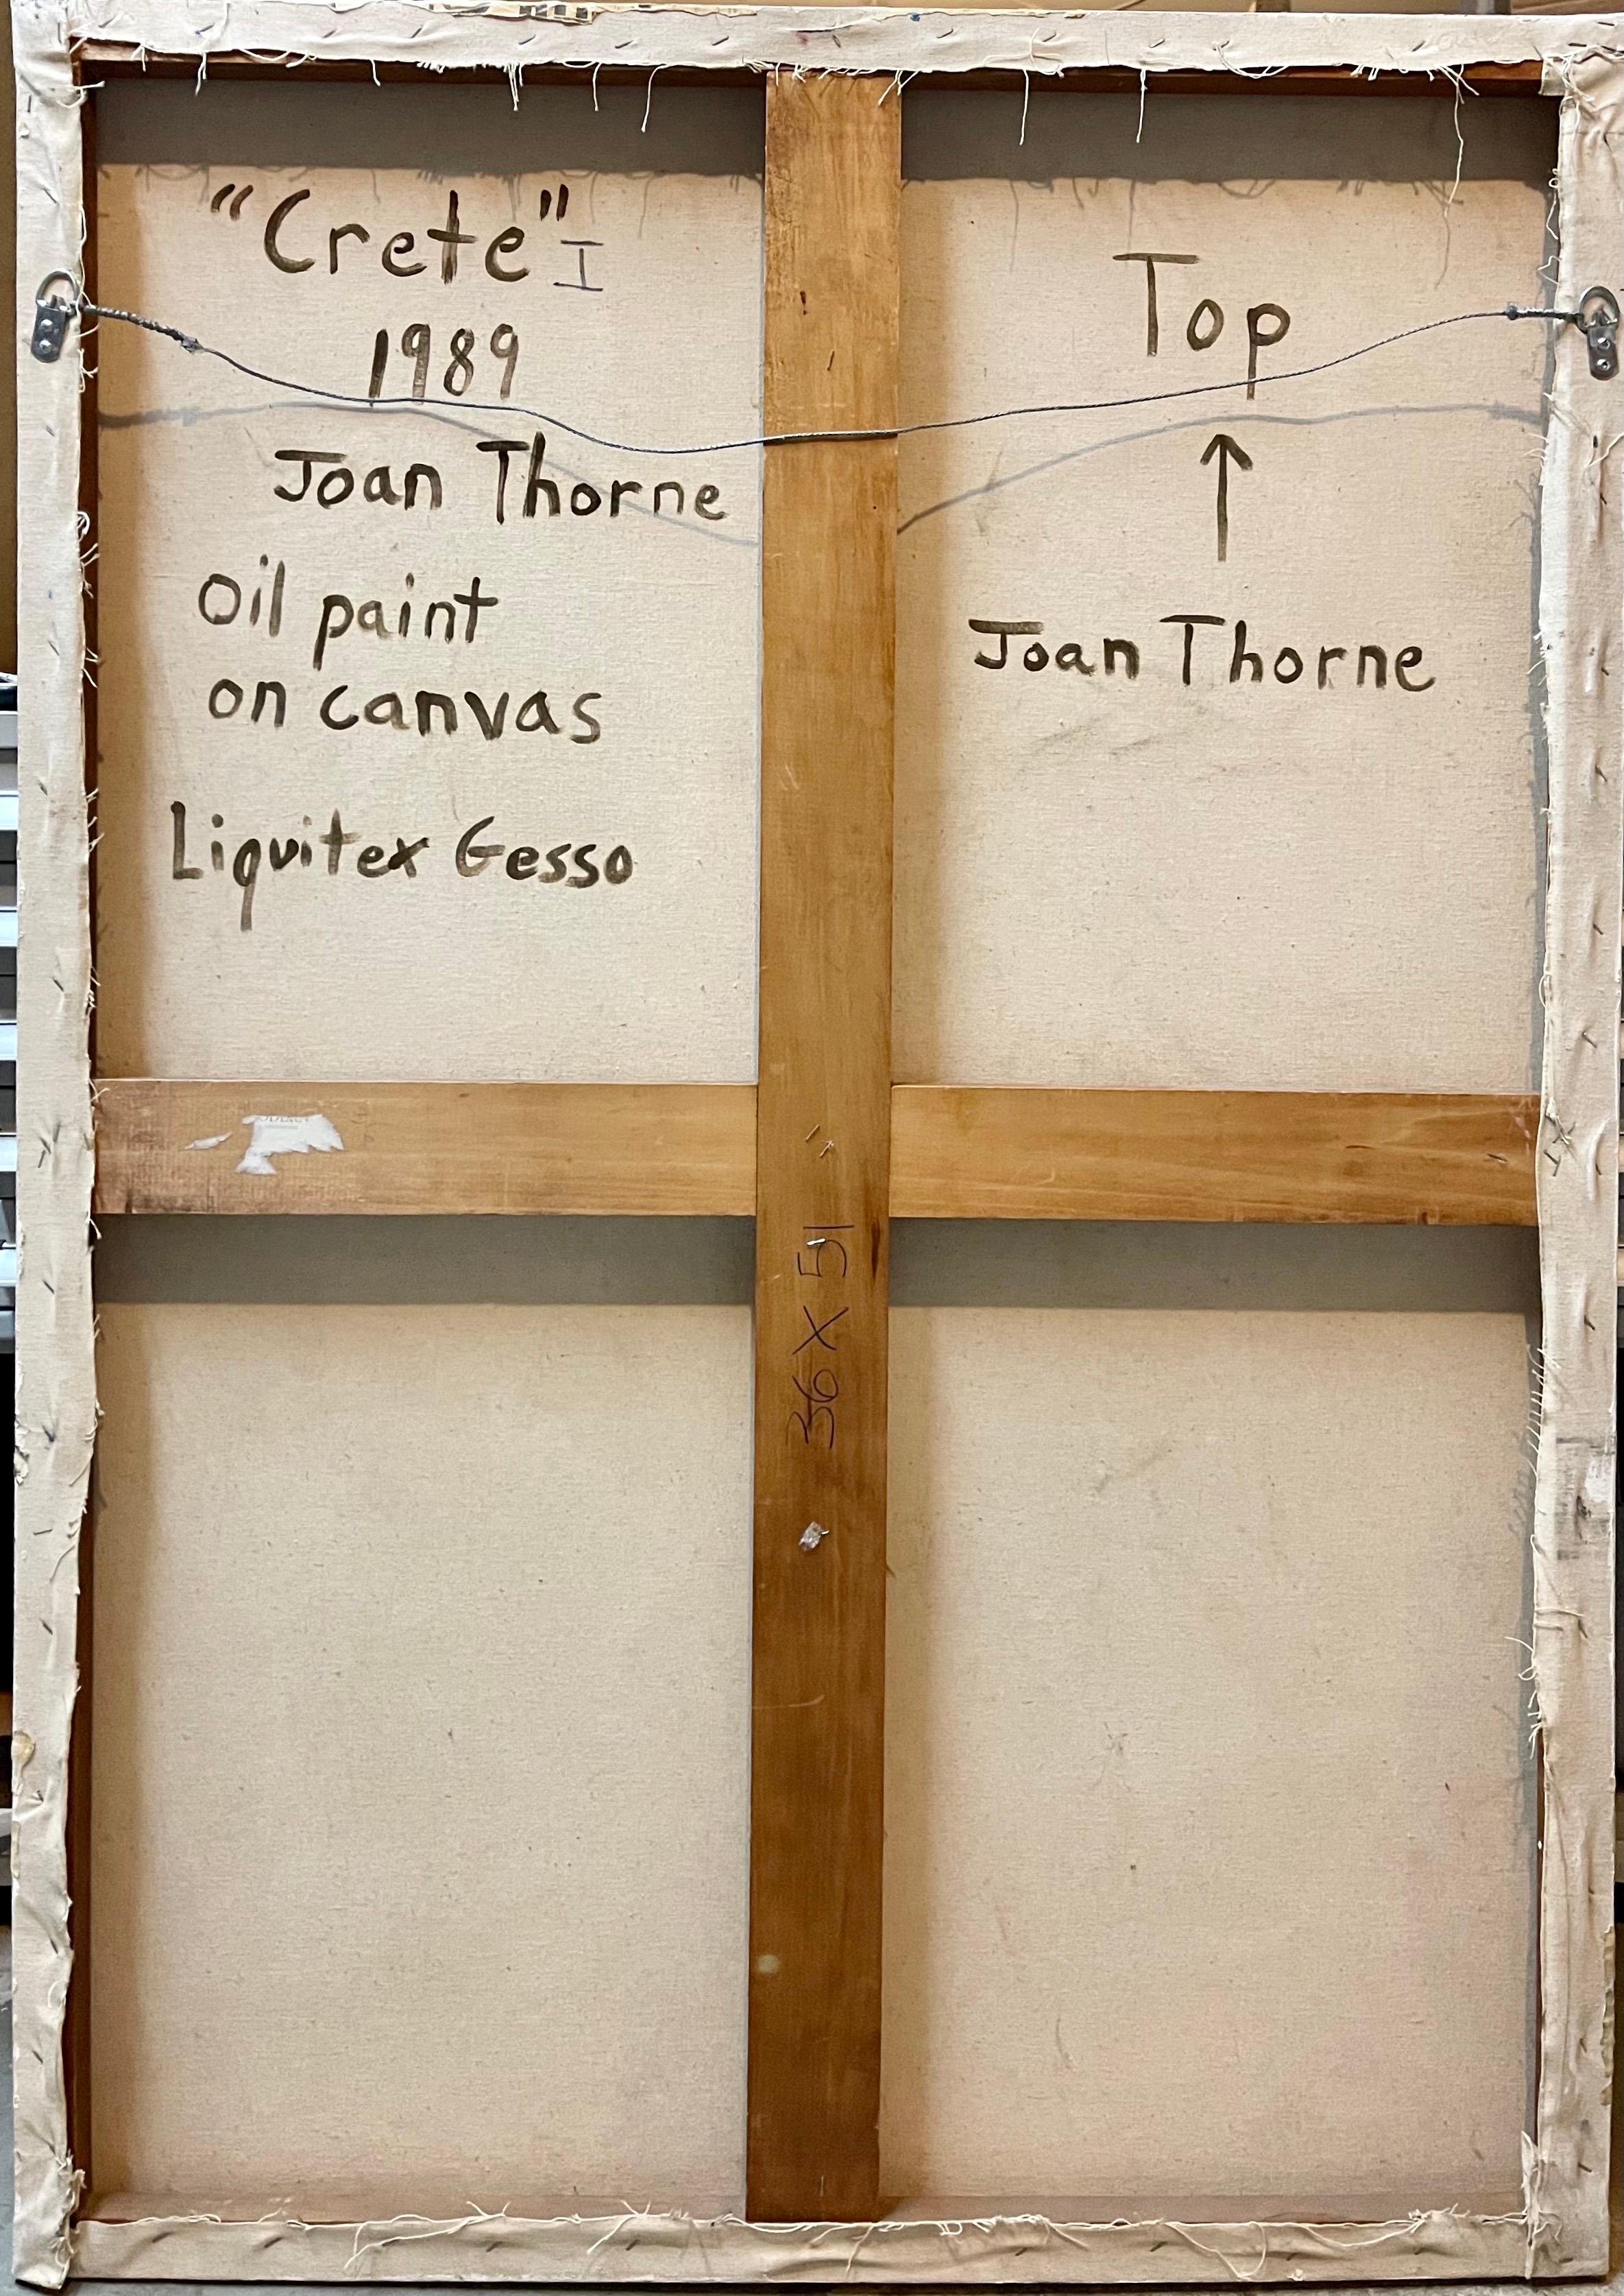 "Crete" I
1989
Joan Thorne
Oil paint
on canvas
Liquitex Gesso
Top
↑
Joan Thorne
36 X 51